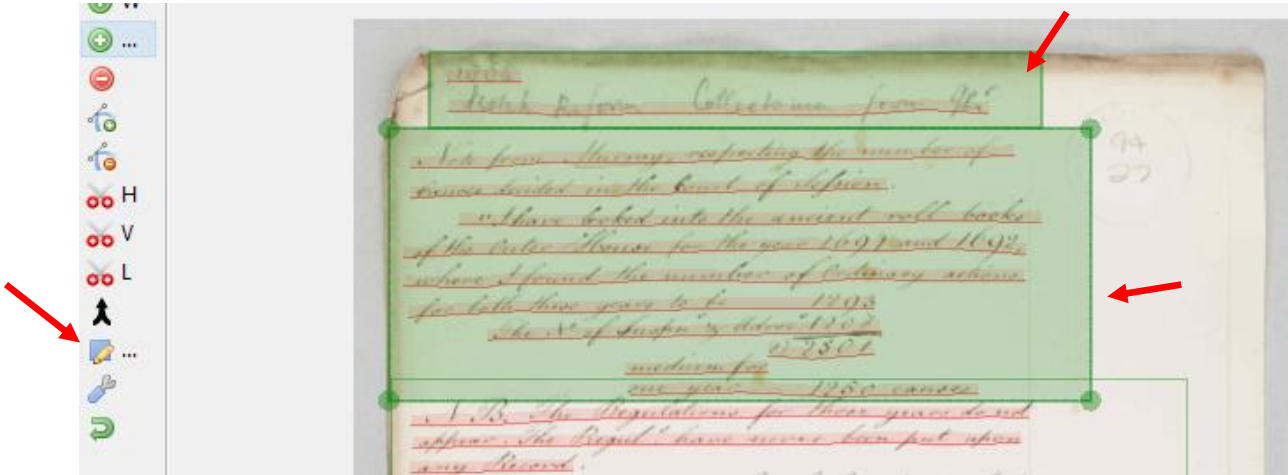 ...
H
V
L
...
Scotch Reform Collectanea from
Note from Murray, respecting the number of
causes decided in the Court of Session.
"I have looked into the ancient roll books
of the Outer House for the year 1691 and 1692,
where I found the number of Ordinary actions
for both these years to be 1293
The No of & 1208
2) 2501
medium for
one year 1250 causes
N.B. The Regulations for those years do not
appear. The Regul.s have never been put upon
any Record.